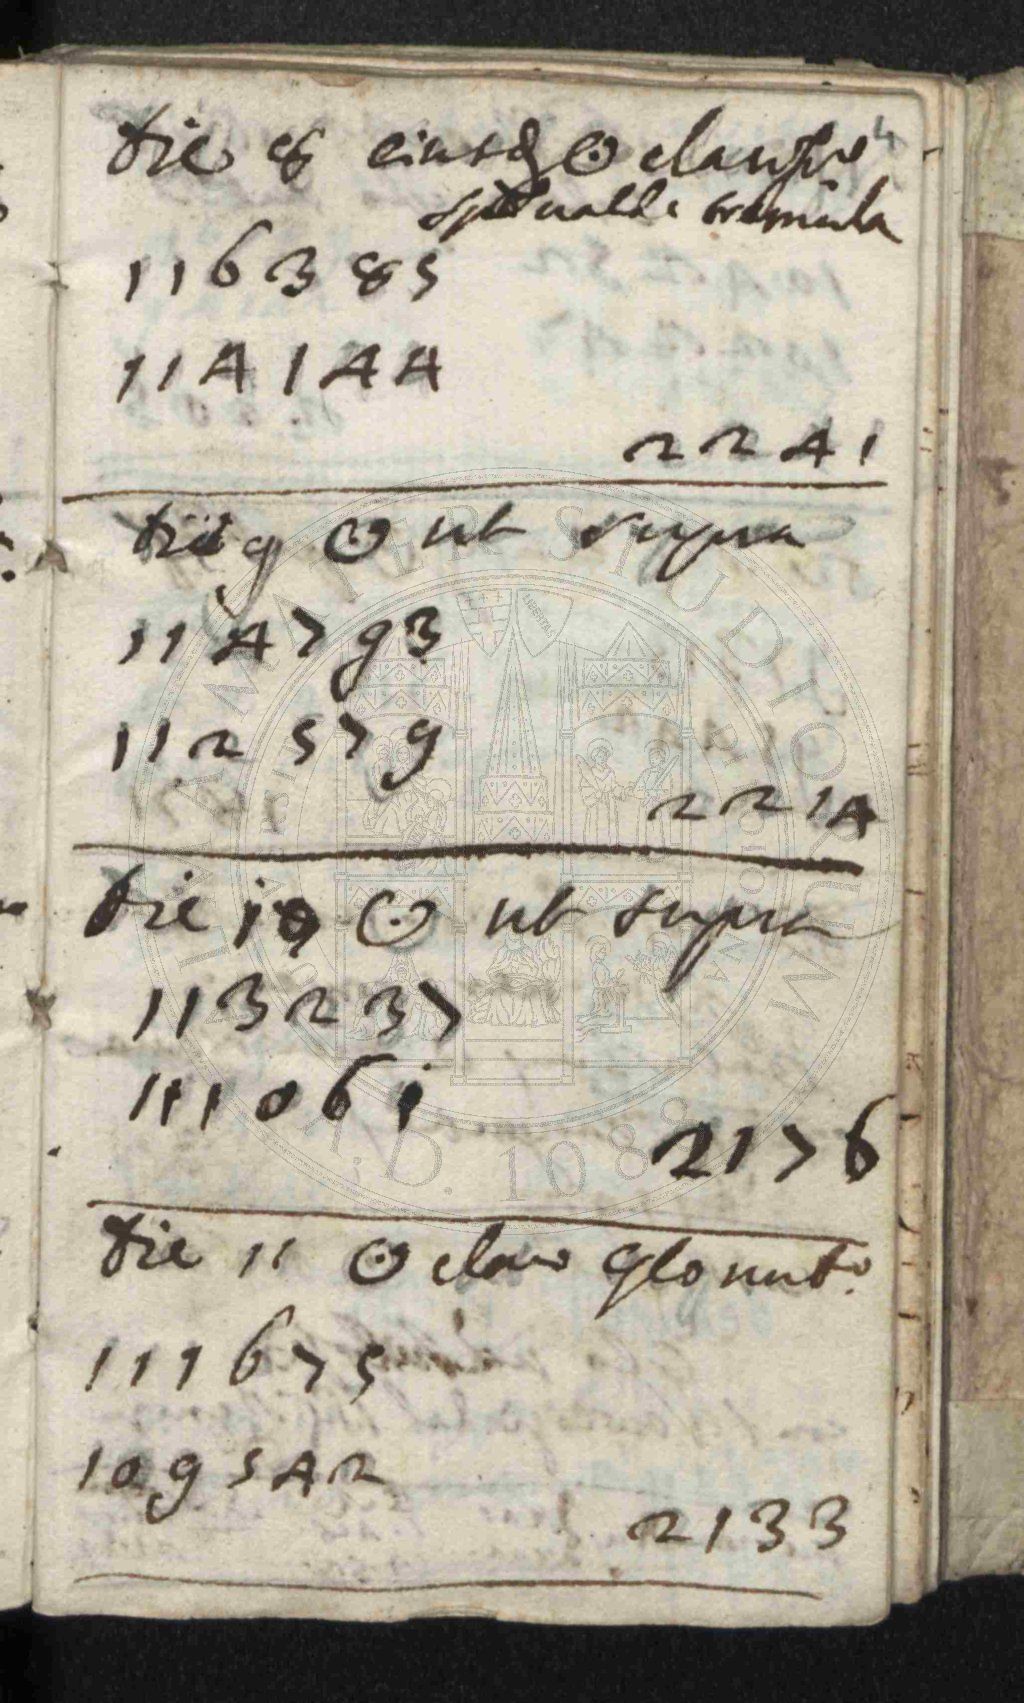 Die 8 eiusd ☉
valde tremula
116385
114144
2241
Die 9 ☉ ut supra
114793
112579
2214
Die 10 ☉ ut supra
113237
111061
2176
Die 11 ☉ clar
111675
109542
2133
ALMA MATER STUDIORUM
A.D. 1088